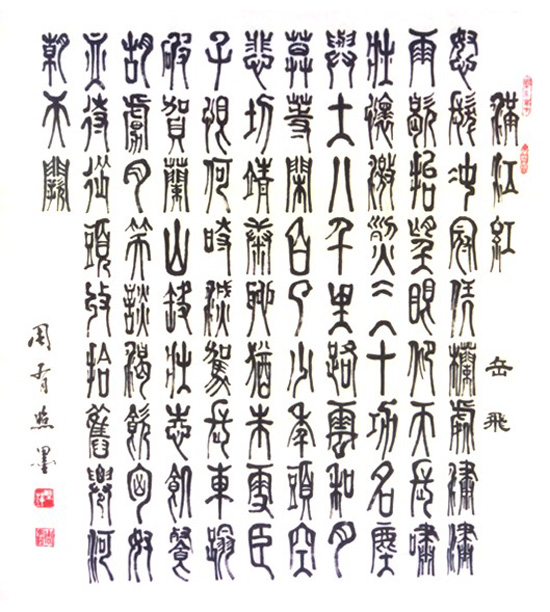 滿江紅 岳飛
怒髮沖冠憑欄處瀟瀟
雨歇抬望眼仰天長嘯
壯懷激烈三十功名塵
與土八千里路雲和月
莫等閒白了少年頭空
悲切靖康恥猶未雪臣
子恨何時滅駕長車踏
破賀蘭山缺壯志飢餐
胡虜肉笑談渴飲匈奴
血待從頭收拾舊河
朝天闕
周墨